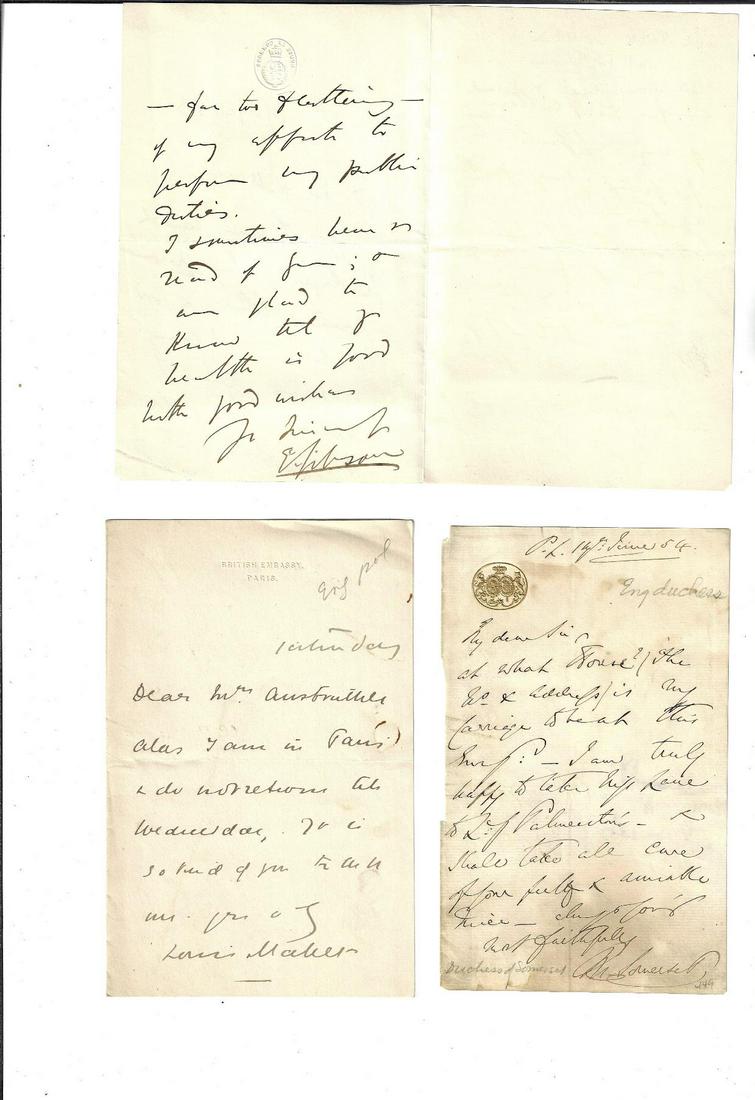 — far too flattering —
of my efforts to
perform my public
duties.
I sometimes hear or
read of you; &
am glad to
know tht yr
health is good
With good wishes
Yr
E Gibson
BRITISH EMBASSY,
PARIS.
Eng pol
Saturday
Dear Mrs Anstruther
alas I am in Paris
& do not return till
Wednesday, It is
so kind of you to ask
me. yrs
Louis Mallet
P.L. 14th June 54.
Eng duchess
My dear Sir,
at what House? (the
No & address) is my
carriage to be at this
I am truly
happy to take Miss Lane
to Ly Palmerston's — &
shall take all care
of your & amiable
Niece —
most faithfully
Duchess of Somerset
M Somerset